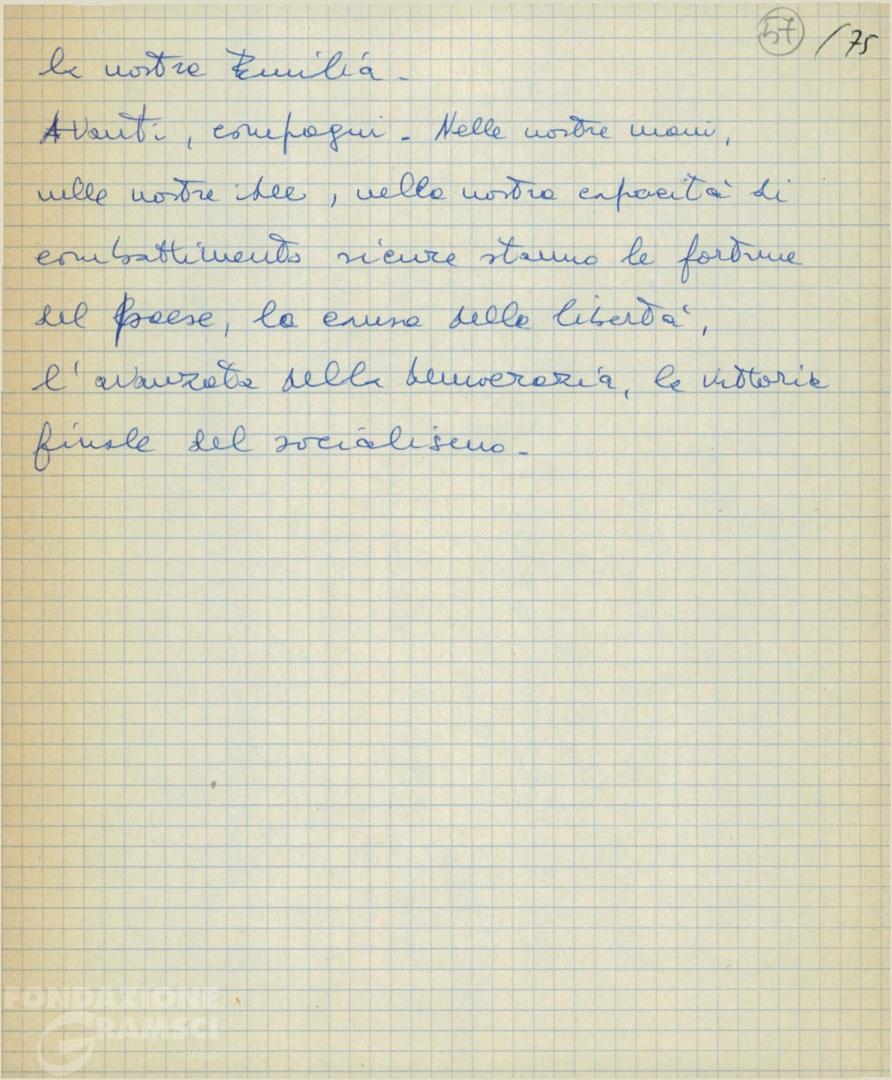 57 / 75
la nostra Emilia.
Avanti, compagni. Nelle nostre mani,
nelle nostre idee, nella nostra capacità di
combattimento sicure stanno le fortune
del paese, la causa della libertà,
l'avanzata della democrazia, la vittoria
finale del socialismo.
FONDAZIONE
GRAMSCI